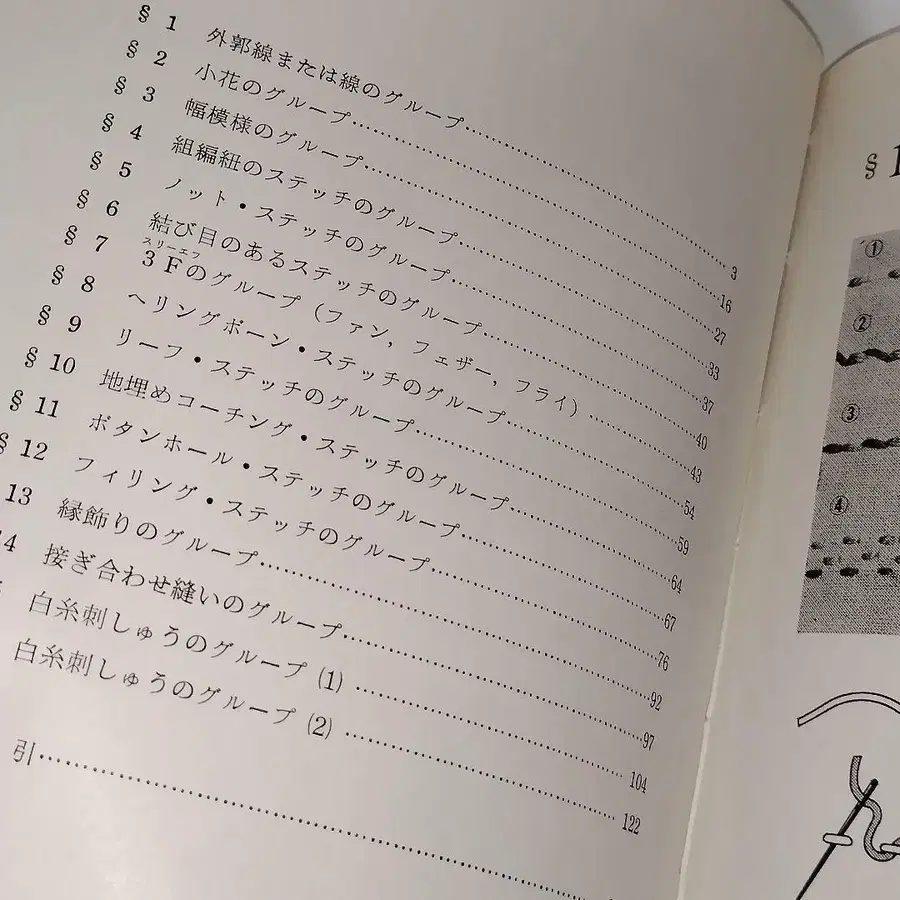 § 1 外郭線または線のグループ……3
§ 2 小花のグループ……16
§ 3 幅模様のグループ……27
§ 4 組編紐のステッチのグループ……33
§ 5 ノット・ステッチのグループ……37
§ 6 結び目のあるステッチのグループ……40
スリーエフ
§ 7 3Fのグループ（ファン，フェザー，フライ）……43
§ 8 ヘリングボーン・ステッチのグループ……54
§ 9 リーフ・ステッチのグループ……59
§ 10 地埋めコーチング・ステッチのグループ……64
§ 11 ボタンホール・ステッチのグループ……67
§ 12 フィリング・ステッチのグループ……76
13 縁飾りのグループ……92
4 接ぎ合わせ縫いのグループ……97
白糸刺しゅうのグループ (1)……104
白糸刺しゅうのグループ (2)……122
引……
§ 1
①
②
③
④